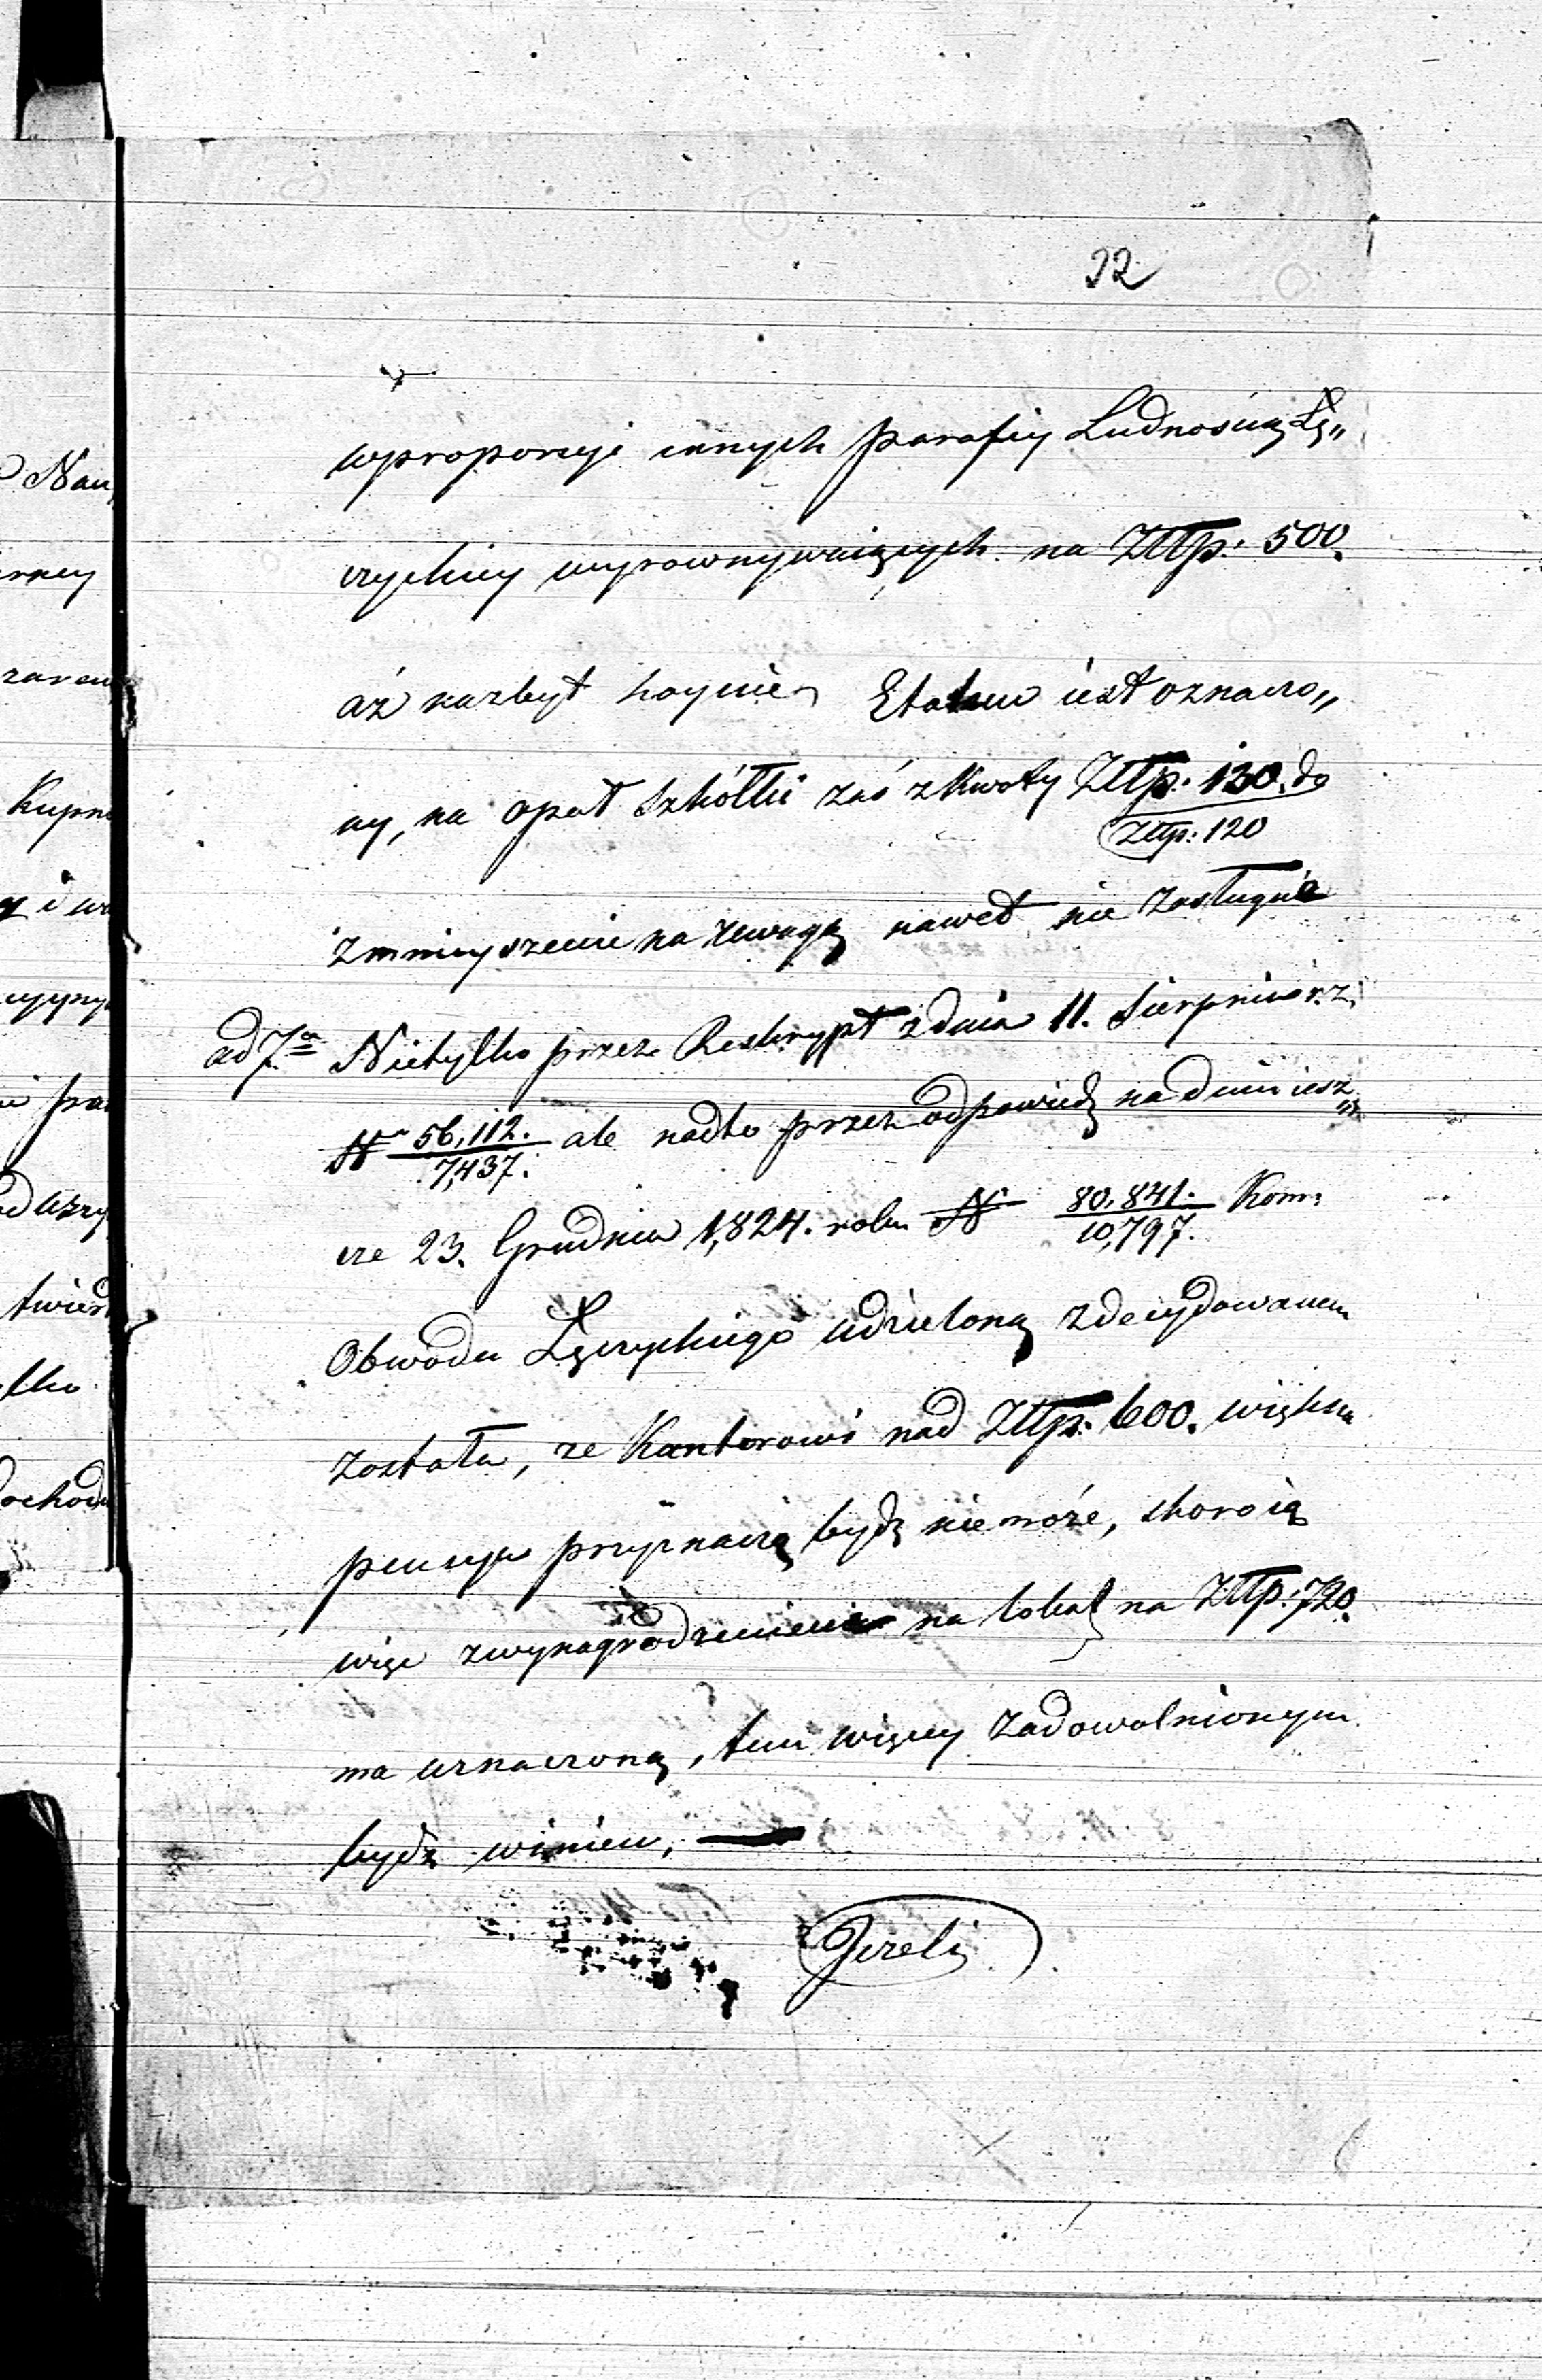 32
wproporcyi innych parafiy Ludnością Łę„
czyckiey wyrownywaiących na Złtp: 500.
aż nazbyt hoynie Etatem iest oznaczo„
ny, na opał Szkółki zaś z kwoty Złtp. 130. do
Złtp: 120
zmnieyszenie na uwagę nawet nie zasługuie
ad 7a Nietylko przez Reskrypt z dnia 11. Sierpnia r. z.
N 56,112./7,437. ale nadto przez odpowiedź na dniu iesz„
cze 23. Grudnia 1,824. roku N 80,841./10,797. Kom:
Obwodu Łęczyckiego udzieloną zdecydowanem
zostało, że Kantorowi nad Złtp: 600. większa
pensya przyznaną bydź nie może, skoro ią
więc z wynagrodzeniem na lokal na Złtp: 720.
ma uznaczoną, tem więcey zadowolnionym
bydź winien,
ad
Nau
Kupn
i wa
pra
twierd
lko
dochod